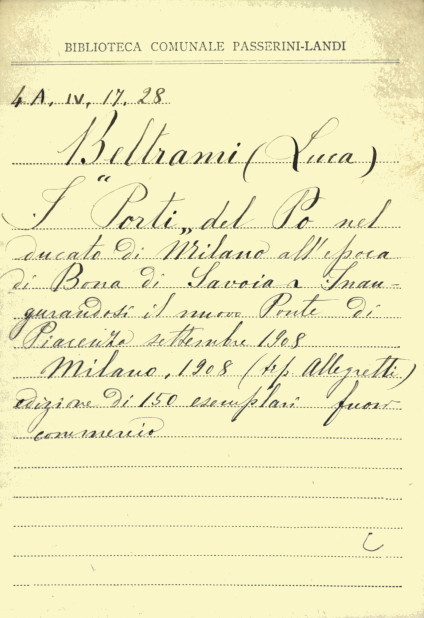 BIBLIOTECA COMUNALE PASSERINI-LANDI
4 A, IV, 17, 28
Beltrami (Luca)
I "Porti„ del Po nel
ducato di Milano all'epoca
di Bona di Savoia Inau-
gurandosi il nuovo Ponte di
Piacenza settembre 1908
Milano, 1908 (tip Allegretti)
edizione di 150 esemplari fuori
commercio